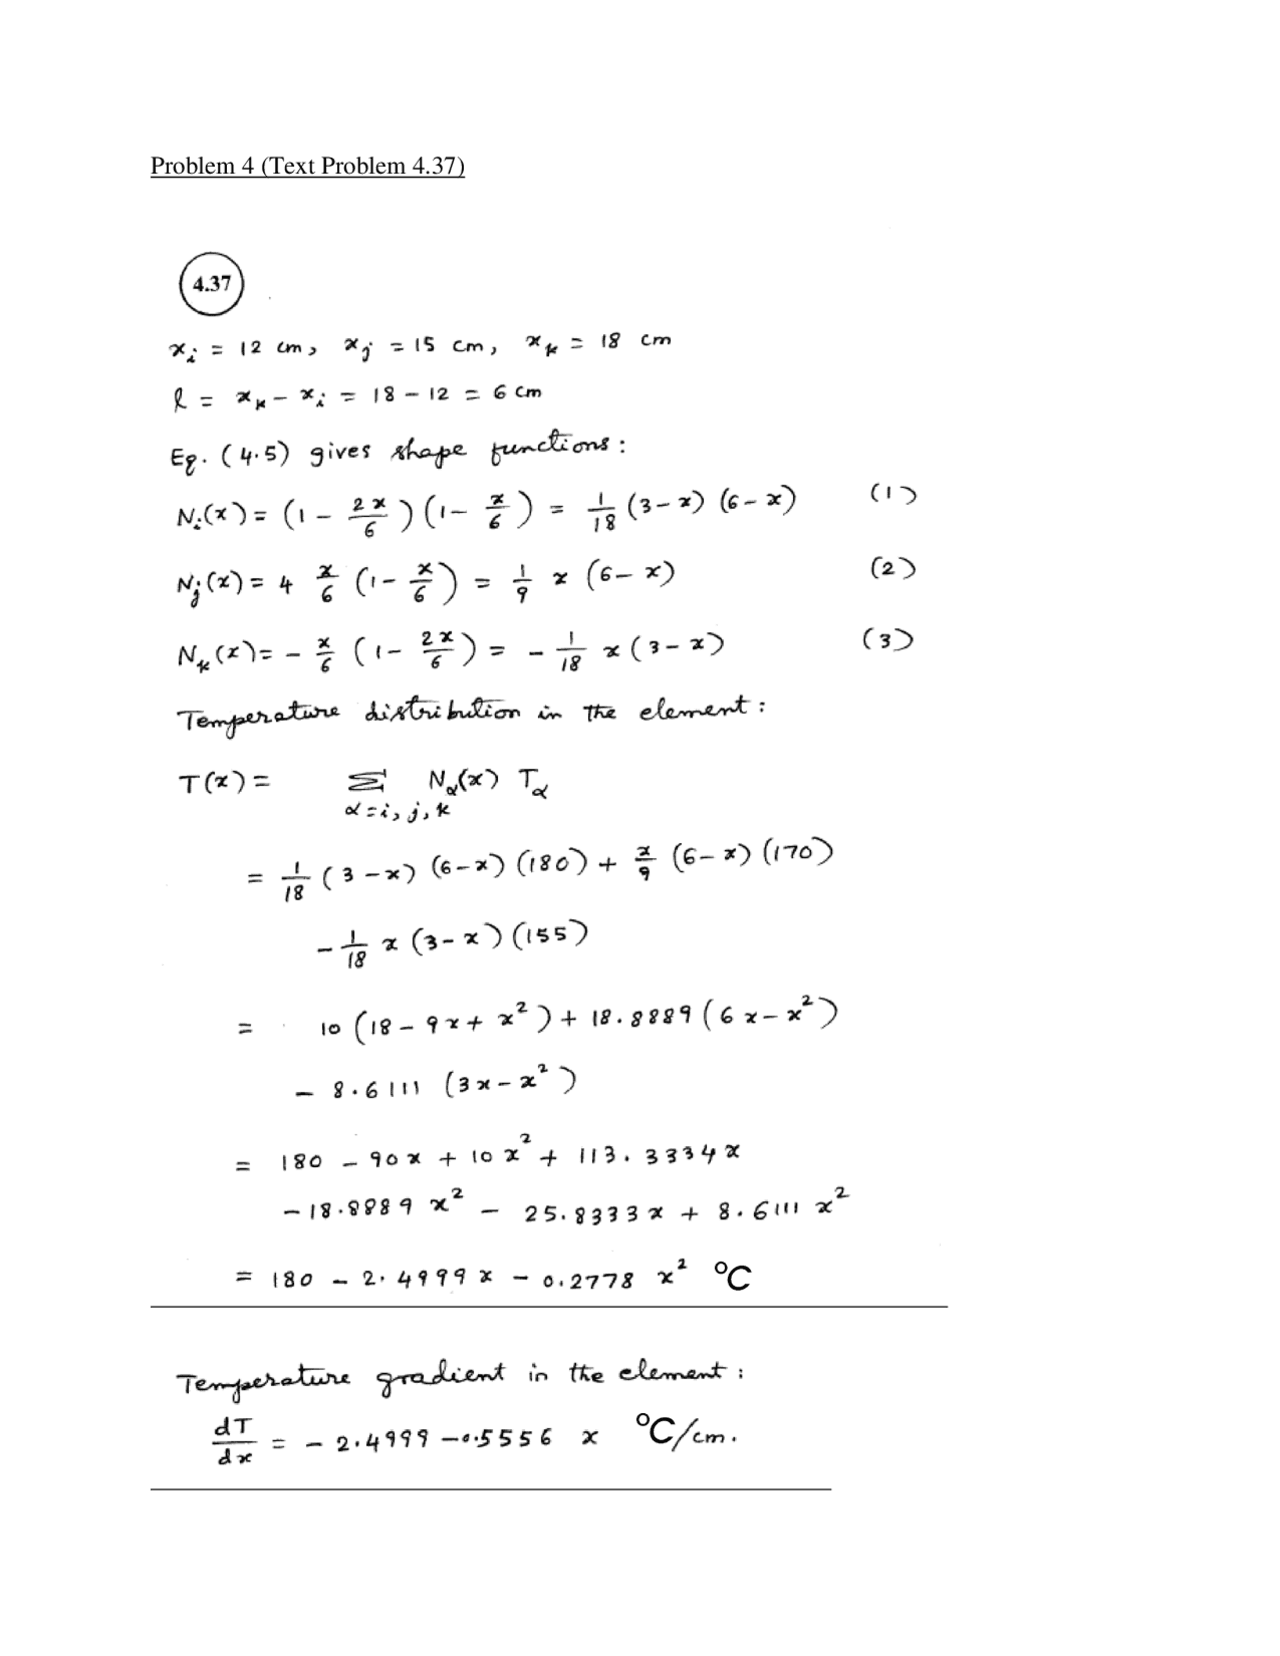 Problem 4 (Text Problem 4.37)
4.37
x_i = 12 cm, x_j = 15 cm, x_k = 18 cm
l = x_k - x_i = 18 - 12 = 6 cm
Eq. (4.5) gives shape functions:
N_i(x) = (1 - 2x/6)(1 - x/6) = 1/18 (3 - x)(6 - x) (1)
N_j(x) = 4 x/6 (1 - x/6) = 1/9 x (6 - x) (2)
N_k(x) = - x/6 (1 - 2x/6) = - 1/18 x (3 - x) (3)
Temperature distribution in the element:
T(x) = Σ N_α(x) T_α
α = i, j, k
= 1/18 (3 - x)(6 - x)(180) + x/9 (6 - x)(170)
- 1/18 x (3 - x)(155)
= 10 (18 - 9x + x²) + 18.8889 (6x - x²)
- 8.6111 (3x - x²)
= 180 - 90x + 10x² + 113.3334x
- 18.8889 x² - 25.8333x + 8.6111 x²
= 180 - 2.4999x - 0.2778 x² °C
Temperature gradient in the element:
dT/dx = - 2.4999 - 0.5556 x °C/cm.